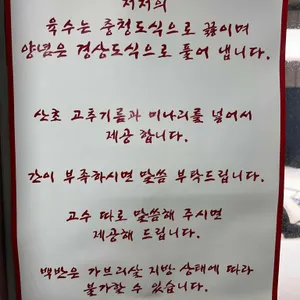 저희의
육수는 충청도식으로 끓이며
양념은 경상도식으로 풀어 냅니다.
산초 고추기름과 미나리를 넣어서
제공 합니다.
간이 부족하시면 말씀 부탁드립니다.
고수 따로 말씀해 주시면
제공해 드립니다.
백반은 가브리살 지방 상태에 따라
불가할 수 있습니다.